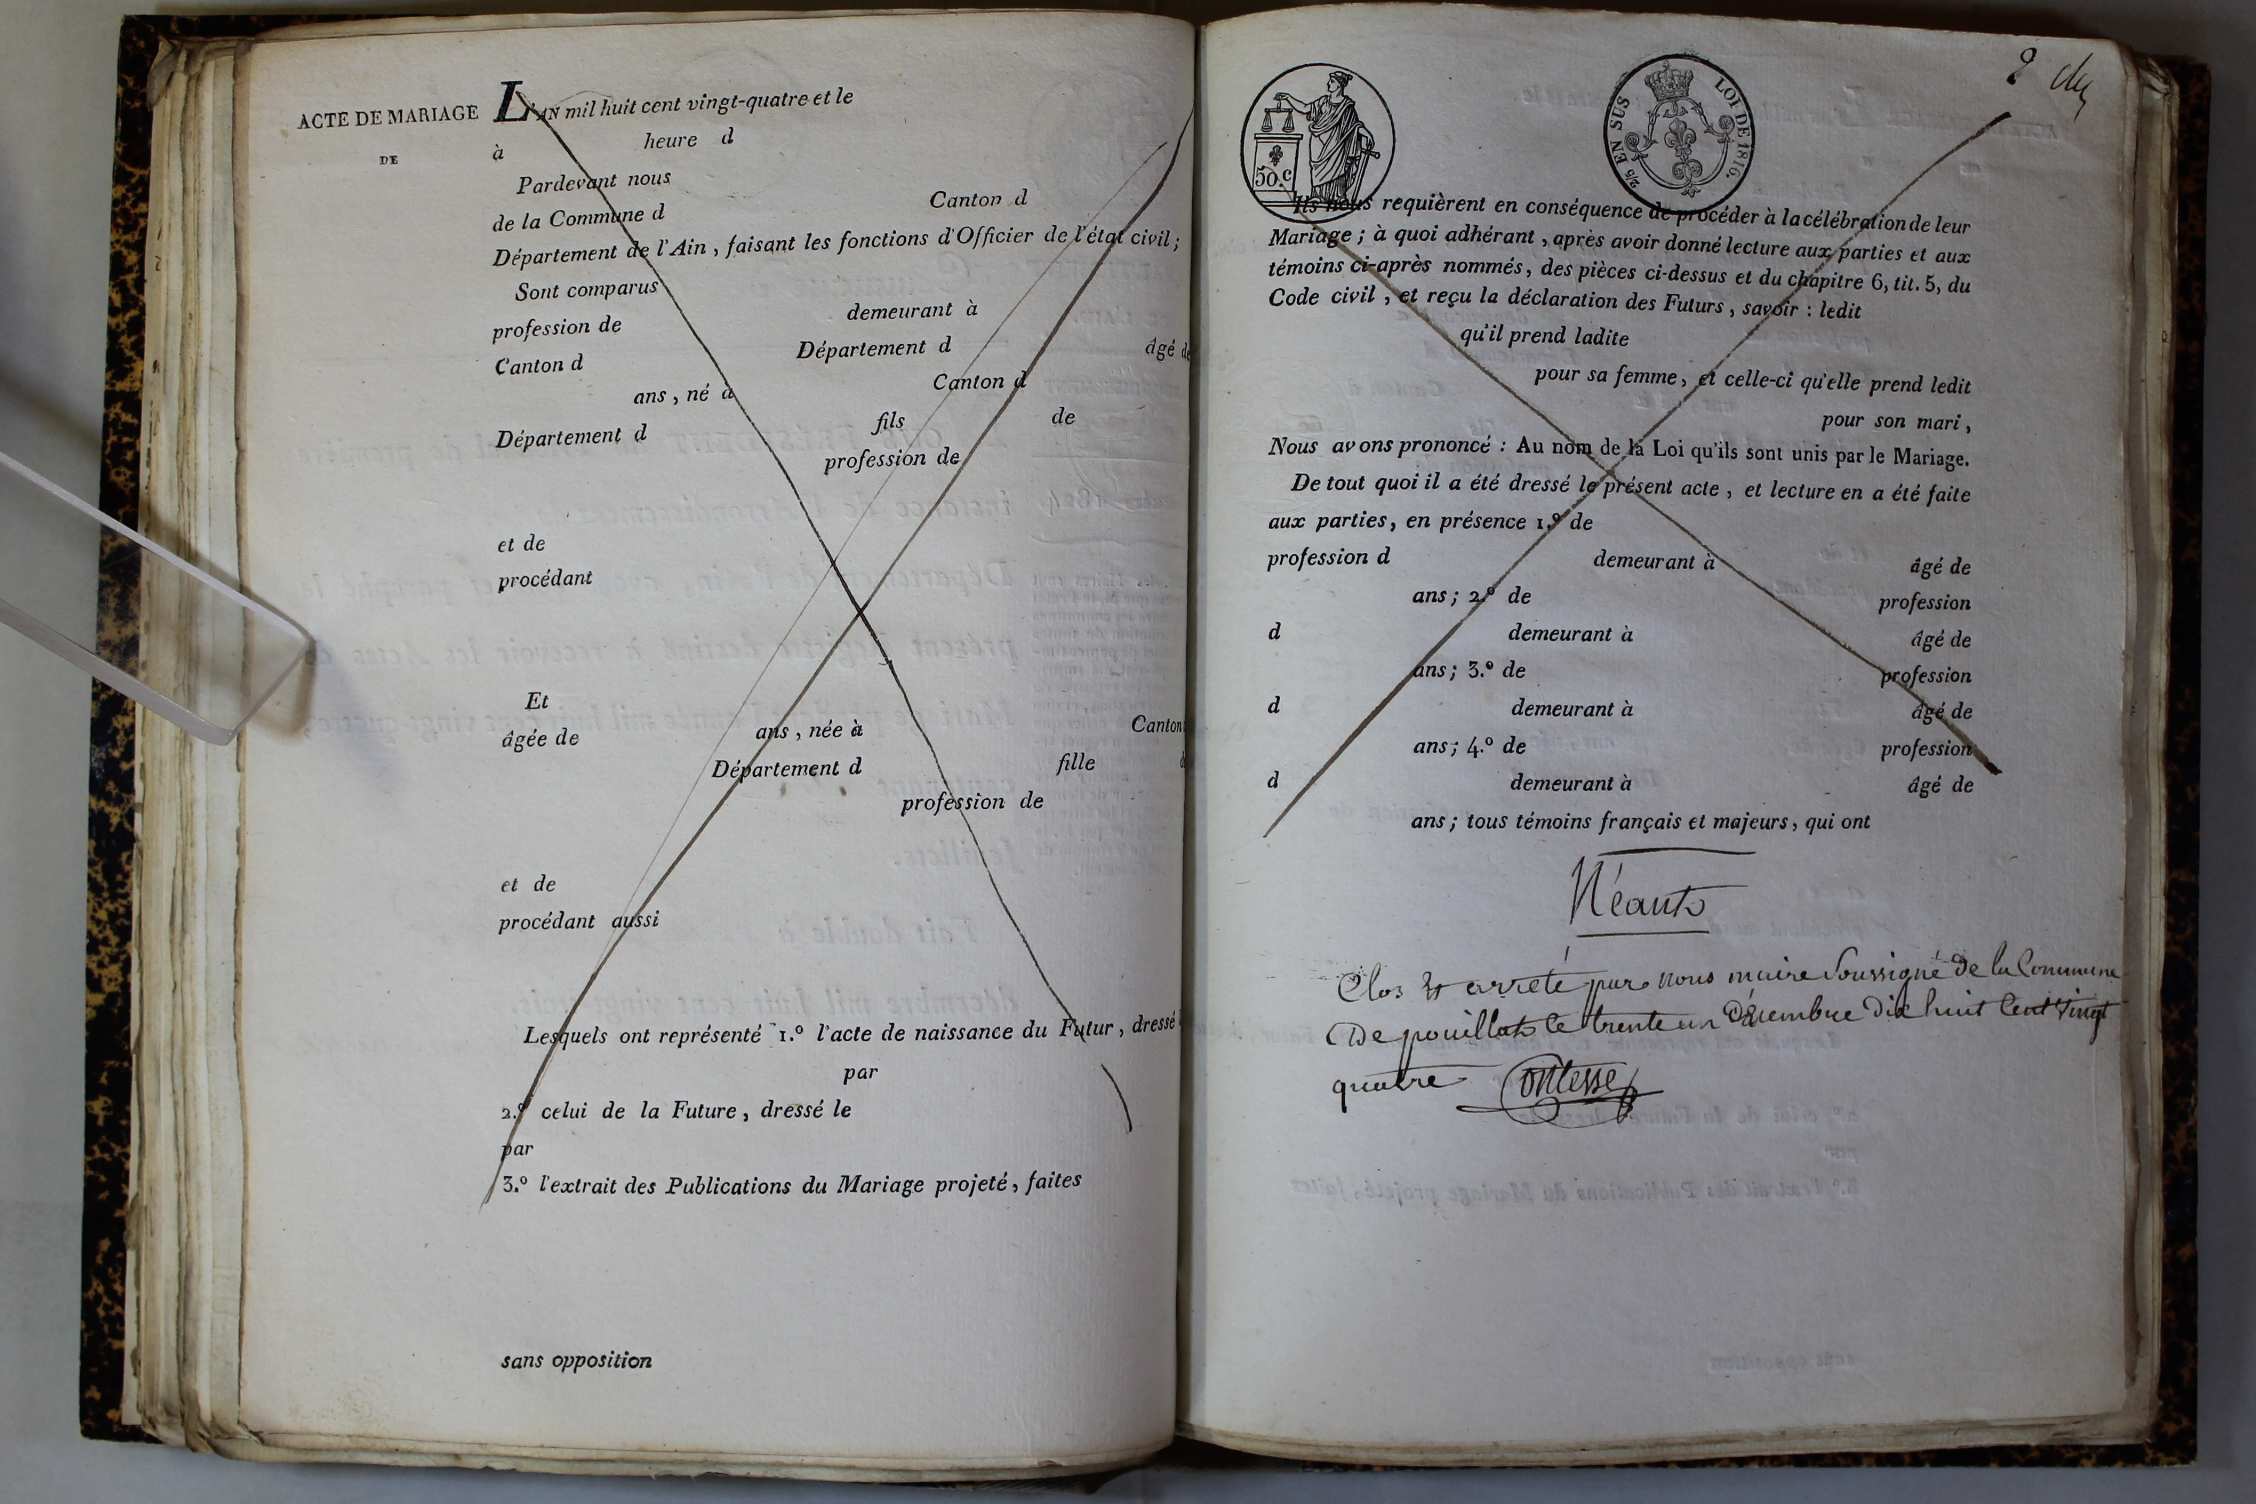 ACTE DE MARIAGE
DE
L'AN mil huit cent vingt-quatre et le
à heure d
Pardevant nous
de la Commune d Canton d
Département de l'Ain, faisant les fonctions d'Officier de l'état civil;
Sont comparus
profession de demeurant à
Canton d Département d âgé de
ans, né à Canton d
Département d fils de
profession de
et de
procédant
Et
âgée de ans, née à Canton
Département d fille d
profession de
et de
procédant aussi
Lesquels ont représenté 1.º l'acte de naissance du Futur, dressé
par
2.º celui de la Future, dressé le
par
3.º l'extrait des Publications du Mariage projeté, faites
sans opposition
50.c
2/5 EN SUS LOI DE 1816.
2
Ils nous requièrent en conséquence de procéder à la célébration de leur
Mariage; à quoi adhérant, après avoir donné lecture aux parties et aux
témoins ci-après nommés, des pièces ci-dessus et du chapitre 6, tit. 5, du
Code civil, et reçu la déclaration des Futurs, savoir: ledit
qu'il prend ladite
pour sa femme, et celle-ci qu'elle prend ledit
pour son mari,
Nous avons prononcé: Au nom de la Loi qu'ils sont unis par le Mariage.
De tout quoi il a été dressé le présent acte, et lecture en a été faite
aux parties, en présence 1.º de
profession d demeurant à âgé de
ans; 2.º de profession
d demeurant à âgé de
ans; 3.º de profession
d demeurant à âgé de
ans; 4.º de profession
d demeurant à âgé de
ans; tous témoins français et majeurs, qui ont
Néant
Clos et arreté par nous maire soussigné de la Commune
De pouillat le trente un Décembre dix huit Cent vingt
quatre Contesse